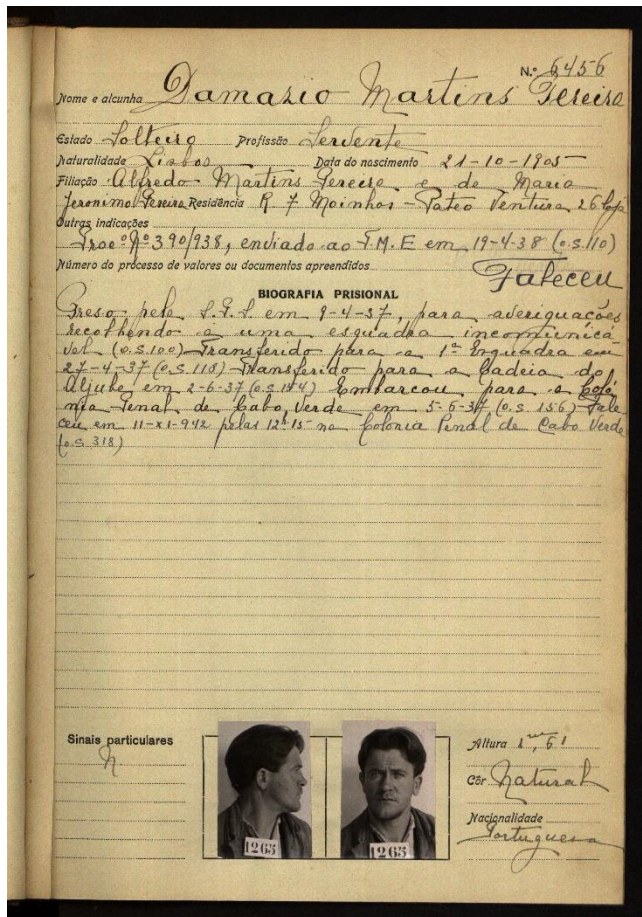 N.º 6456
Nome e alcunha Damazio Martins Pereira
Estado Solteiro Profissão Servente
Naturalidade Lisboa Data do nascimento 21-10-1905
Filiação Alfredo Martins Pereira e de Maria
Jeronimo Pereira Residência R. 7 Moinhos - Pateo Ventura, 26 loja
Outras indicações
Proc.º Nº 390/938, enviado ao T.M.E em 19-4-38 (o.s.110)
Número do processo de valores ou documentos apreendidos
Faleceu
BIOGRAFIA PRISIONAL
Preso pela em 9-4-37, para averiguações
recolhendo a uma esquadra incomunicá
vel (o.s.100) Transferido para a 1ª Esquadra em
27-4-37 (o.s.118) Transferido para a Cadeia do
Aljube em 2-6-37 (o.s.154) Embarcou para a Coló
nia Penal de Cabo Verde em 5-6-37 (o.s 156) Fale
ceu em 11-XI-942 pelas 12h-15 na Colonia Penal de Cabo Verde
(o.s. 318)
Sinais particulares
N
1265
1265
Altura 1m,61
Côr Natural
Nacionalidade
Portuguesa